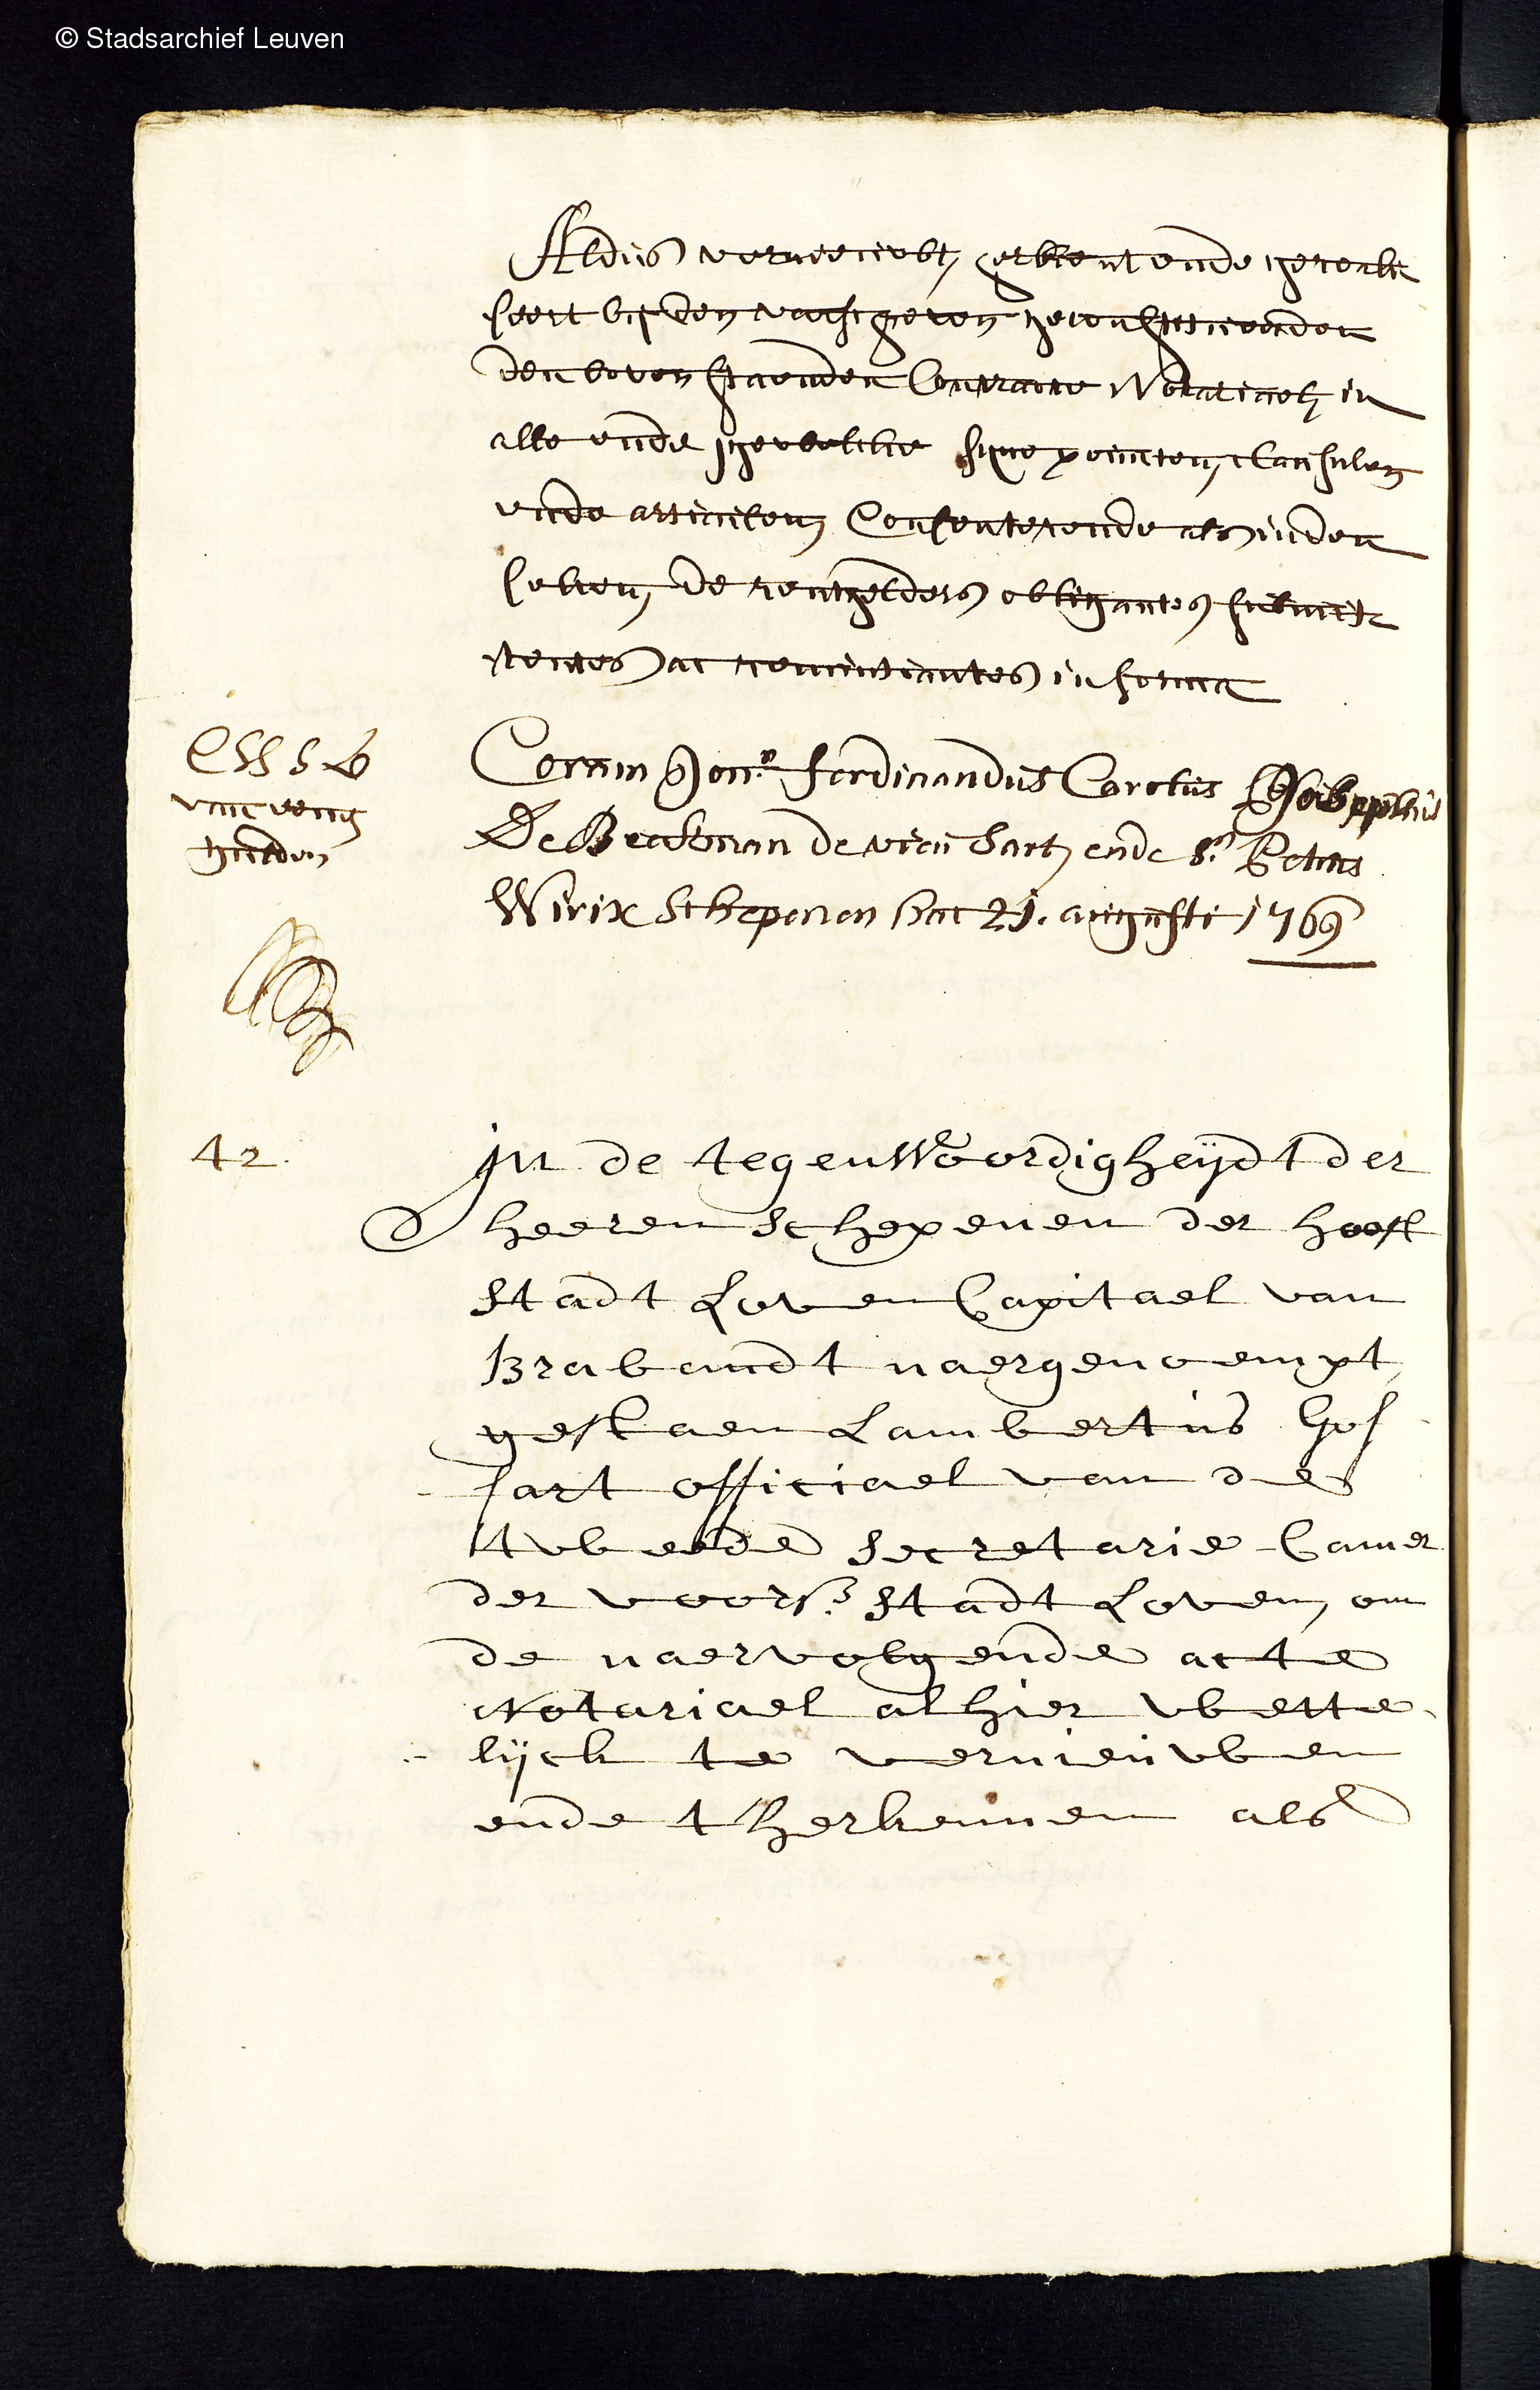 © Stadsarchief Leuven
Aldus vernieuwt, erkent ende gerea-
liseert by den voorschreven geconstitueerden
den bovenstaenden Contracte Notariael in
alle ende jegelicke syne poincten, clausulen
ende articulen Consenterende als in den
selven, de rentgelders obligantes submit-
tentes ac renuntiantes in forma
van veng
gulden
Coram Jonr. Ferdinandus Carolus Philippus
De Beeckman de vieu Sart, ende Sr. Petrus
Wirix Schepenen hac 21. augusti 1769
42.
In de tegenWoordigheÿdt der
heeren Schepenen der hooft
Stadt Loven Capitael van
Brabandt naergenoempt,
gestaen Lambertus Gos-
sart officiael van de
tweede Secretarie Camer
der voors. Stadt Loven, om
de naervolgende acte
Notariael alhier wette-
lijck te vernieuwen
ende t herkennen als